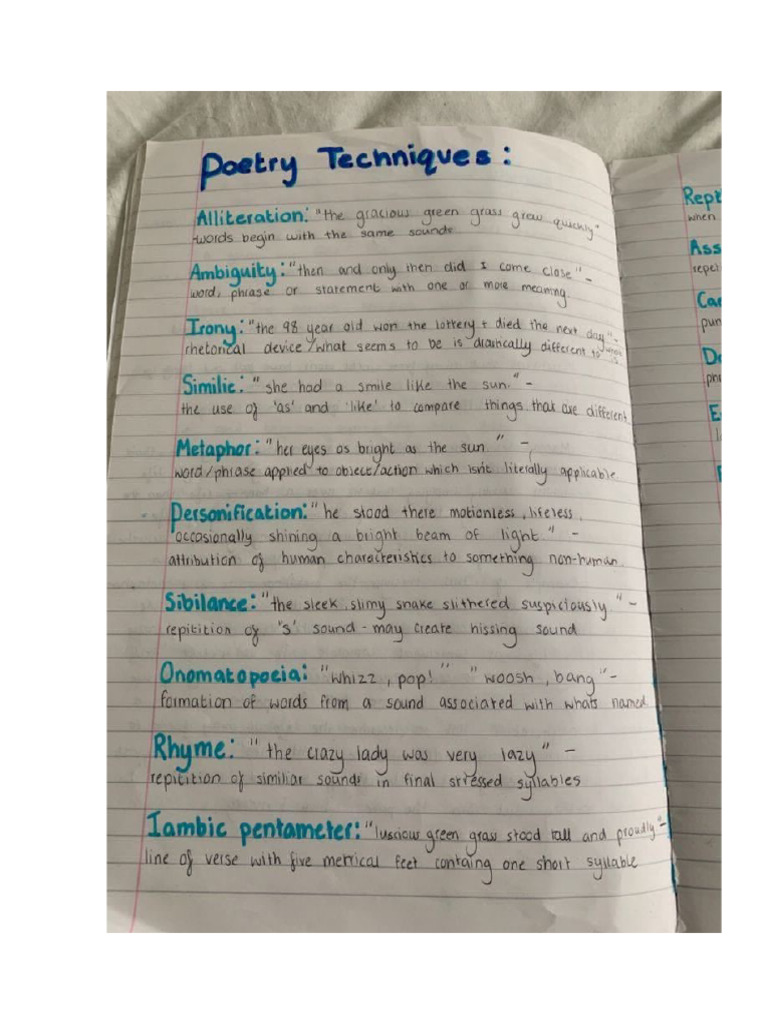 Poetry Techniques:
Alliteration: "the gracious green grass grow quickly"
-words begin with the same sounds
Ambiguity: "then and only then did I come close" -
word, phrase or statement with one or more meaning.
Irony: "the 98 year old won the lottery + died the next day" -
rhetorical device/what seems to be is drastically different to
Similie: "she had a smile like the sun." -
the use of 'as' and 'like' to compare things that are different
Metaphor: "her eyes as bright as the sun" -
word/phrase applied to object/action which isnt literally applicable.
Personification: "he stood there motionless, lifeless,
occasionally shining a bright beam of light." -
attribution of human characteristics to something non-human.
Sibilance: "the sleek, slimy snake slithered suspiciously" -
repitition of 's' sound - may create hissing sound
Onomatopoeia: "whizz, pop!" "woosh, bang" -
formation of words from a sound associated with whats named.
Rhyme: "the crazy lady was very lazy" -
repitition of similiar sounds in final stressed syllables
Iambic pentameter: "luscious green grass stood tall and proudly" -
line of verse with five metrical feet containg one short syllable
Rept
when
Ass
repet
Cae
pun
De
phr
E